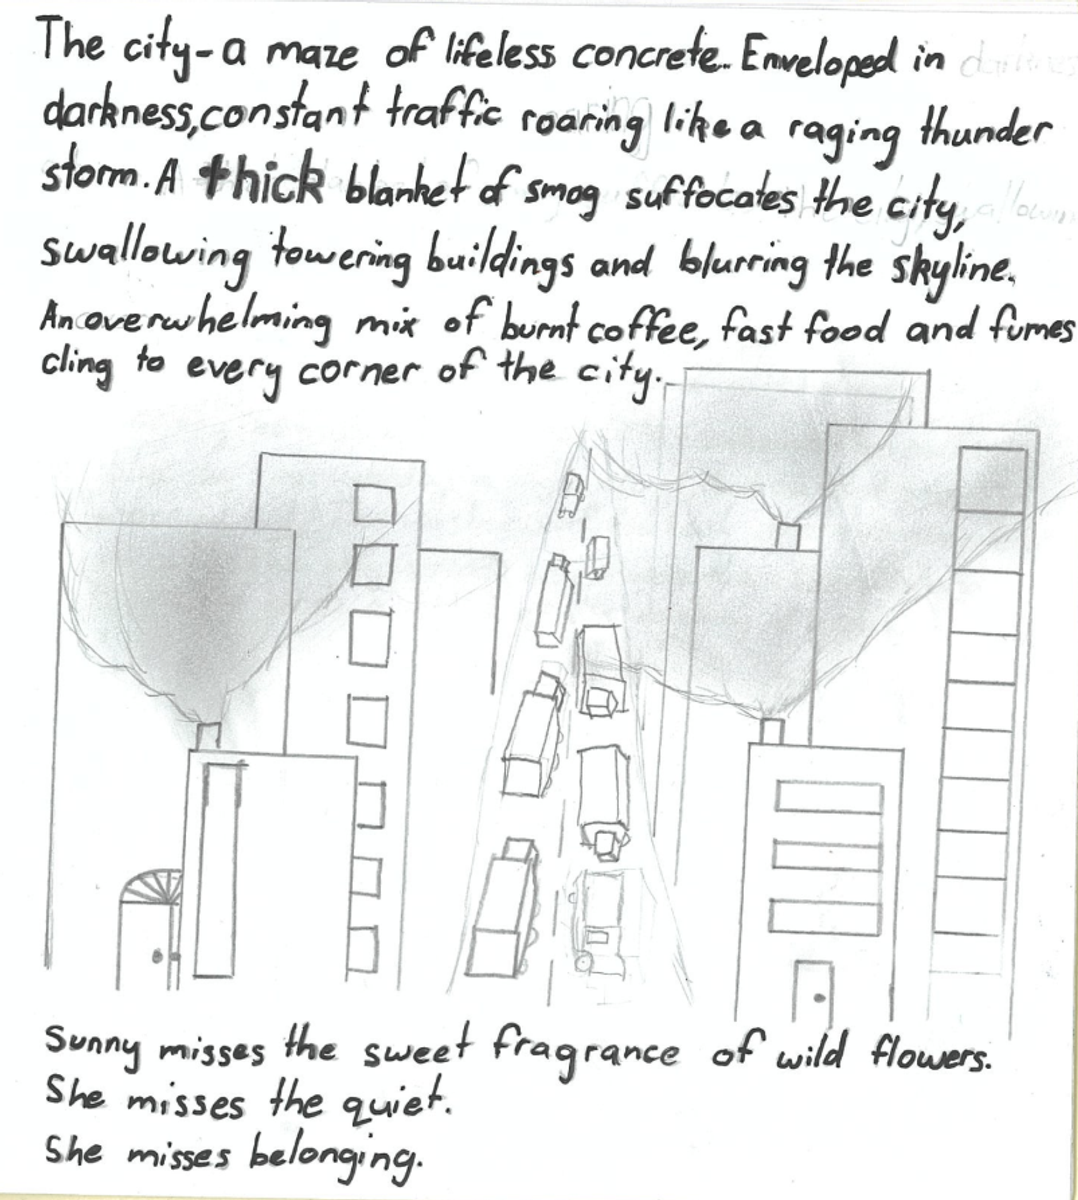 The city-a maze of lifeless concrete. Enveloped in
darkness,constant traffic roaring like a raging thunder
storm. A thick blanket of smog suffocates the city,
swallowing towering buildings and blurring the skyline.
An overwhelming mix of burnt coffee, fast food and fumes
cling to every corner of the city.
Sunny misses the sweet fragrance of wild flowers.
She misses the quiet.
She misses belonging.